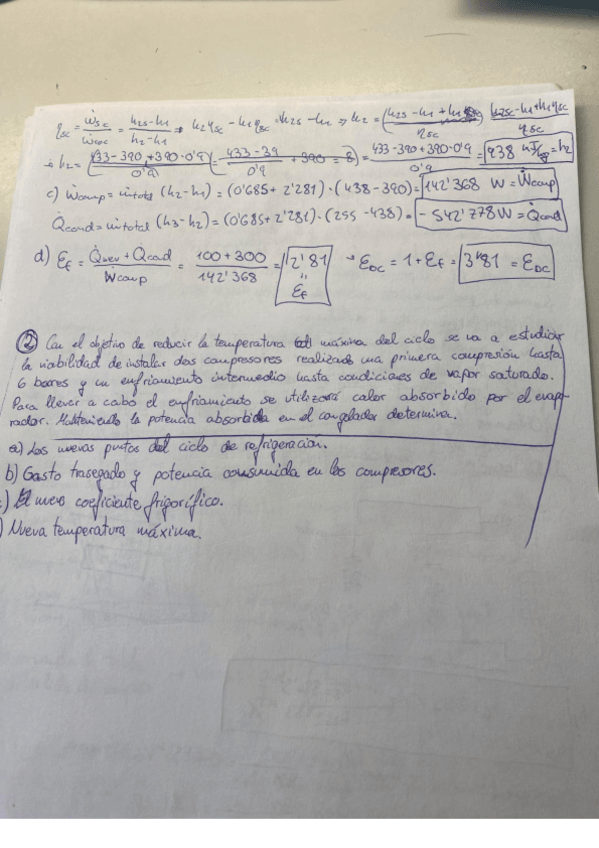 ηsc = Ẇsc/Ẇreal = h2s-h1/h2-h1 → h2ηsc - h1ηsc = h2s - h1 ⇒ h2 = (h2s - h1 + h1 / ηsc) h2sc-h1+h1ηsc / ηsc
→ h2 = (433-390+390·0'9 / 0'9) (= 433-39 / 0'9 + 390 = 8) = 433-390+390·0'9 / 0'9 = 438 kJ/kg = h2
c) Ẇcomp = ṁtotal (h2-h1) = (0'685+2'281)·(438-390) = 142'368 W = Ẇcomp
Q̇cond = ṁtotal (h3-h2) = (0'685+2'281)·(255-438) = -542'778W = Q̇cond
d) Ef = Q̇nev + Q̇cad / Ẇcomp = 100+300 / 142'368 = 2'81 = Ef → EBC = 1+Ef = 3'81 = EBC
② Con el objetivo de reducir la temperatura máxima del ciclo se va a estudiar
la viabilidad de instalar dos compresores realizado una primera compresión hasta
6 bares y un enfriamiento intermedio hasta condiciones de vapor saturado.
Para llevar a cabo el enfriamiento se utilizará calor absorbido por el evapo-
rador. Manteniendo la potencia absorbida en el congelador determina.
a) Los nuevos puntos del ciclo de refrigeración.
b) Gasto trasegado y potencia consumida en los compresores.
) El nuevo coeficiente frigorífico.
) Nueva temperatura máxima.